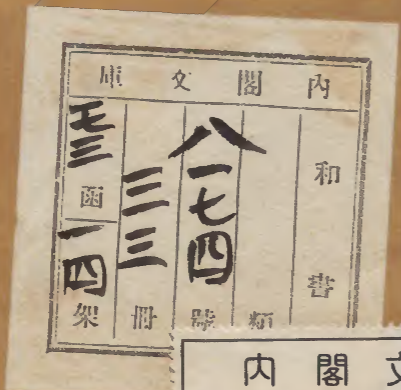 内閣文庫
和書
類
八一七四號
三三冊
三函
一四架
内閣文